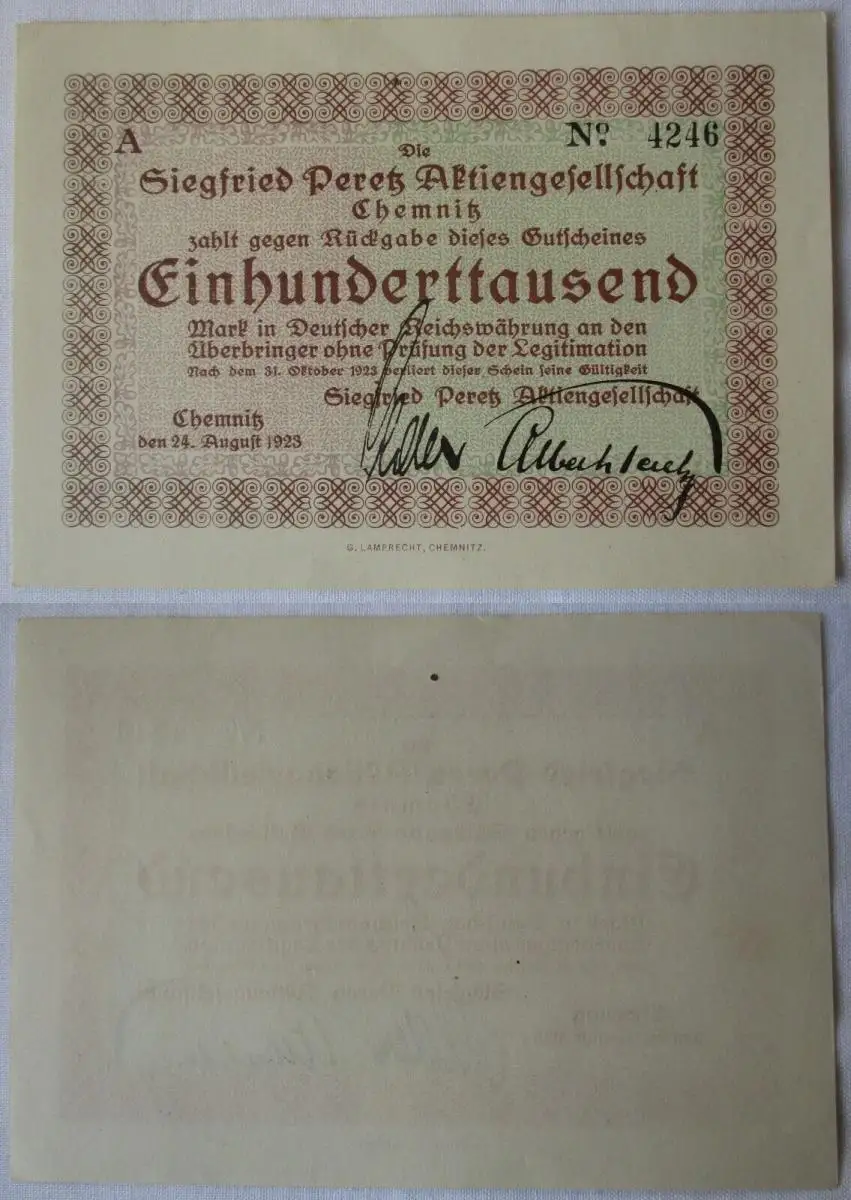 A
Nº 4246
Die
Siegfried Peretz Aktiengesellschaft
Chemnitz
zahlt gegen Rückgabe dieses Gutscheines
Einhunderttausend
Mark in Deutscher Reichswährung an den
Überbringer ohne Prüfung der Legitimation
Nach dem 31. Oktober 1923 verliert dieser Schein seine Gültigkeit
Siegfried Peretz Aktiengesellschaft
Chemnitz
den 24. August 1923
G. LAMPRECHT, CHEMNITZ.